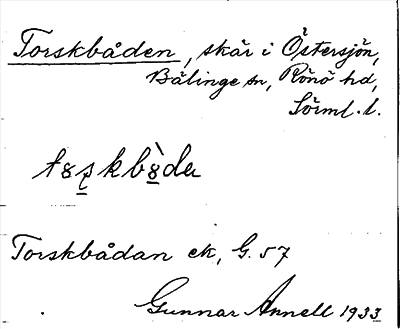 Torskbåden, skär i Östersjön,
Bälinge sn, Rönö hd,
Sörml. l.
Torskbådan ek, G. 57
Gunnar Annell 1933